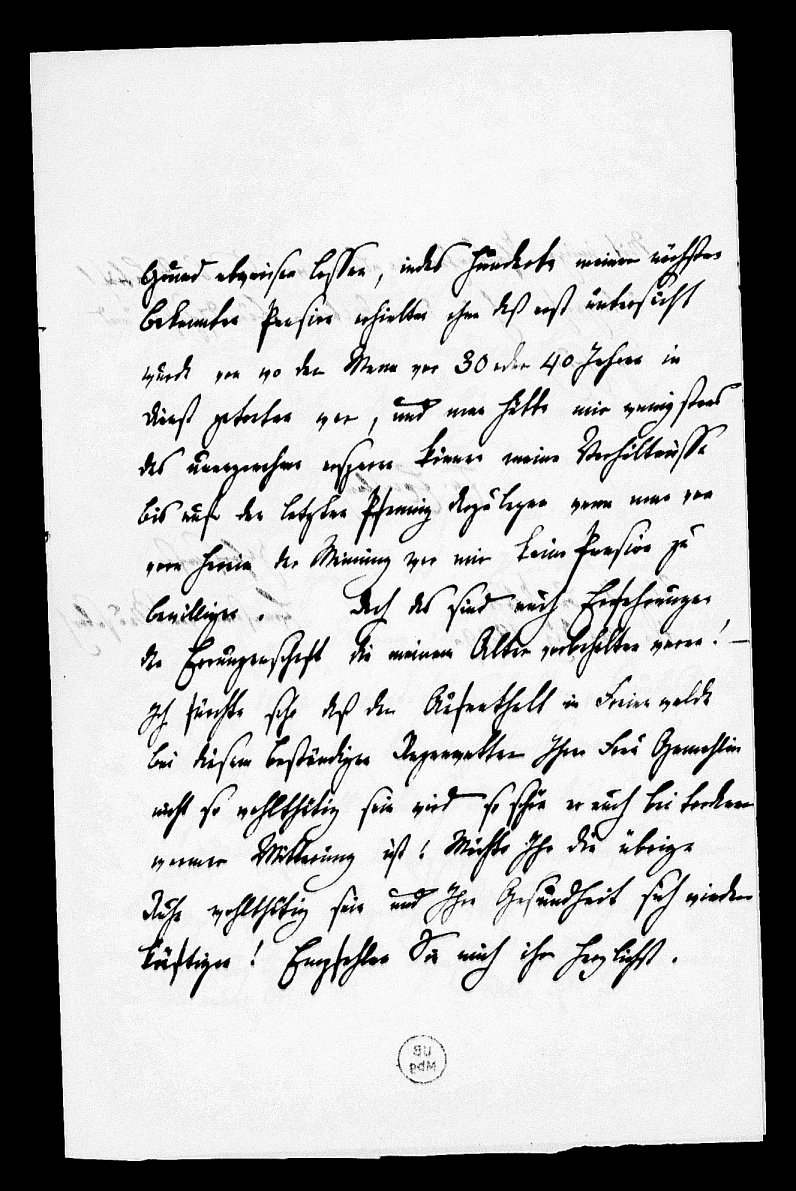 Grund abweisen lassen, indeß Hunderte meiner nächsten
Bekannten Pension erhielten ohne daß erst untersucht
wurde von wo der Mann vor 30 oder 40 Jahren in
Dienst getreten war, und man hätte mir wenigstens
das unangenehme ersparen können meine Verhältnisse
bis auf den letzten Pfennig darzulegen wenn man von
vorn herein der Meinung war mir keine Pension zu
bewilligen. Doch das sind auch Erfahrungen
die Errungenschaft die meinem Alter vorbehalten waren! —
Ich fürchte sehr daß der Aufenthalt in Freienwalde
bei diesem beständigen Regenwetter Ihrer Frau Gemahlin
nicht so wohlthätig sein wird so schön er auch bei trockener
warmer Witterung ist! Möchte Ihr die übrige
Ruhe wohlthätig sein und Ihre Gesundheit sich wieder
kräftigen! Empfehlen Sie mich ihr herzlichst.
UB
Mbg